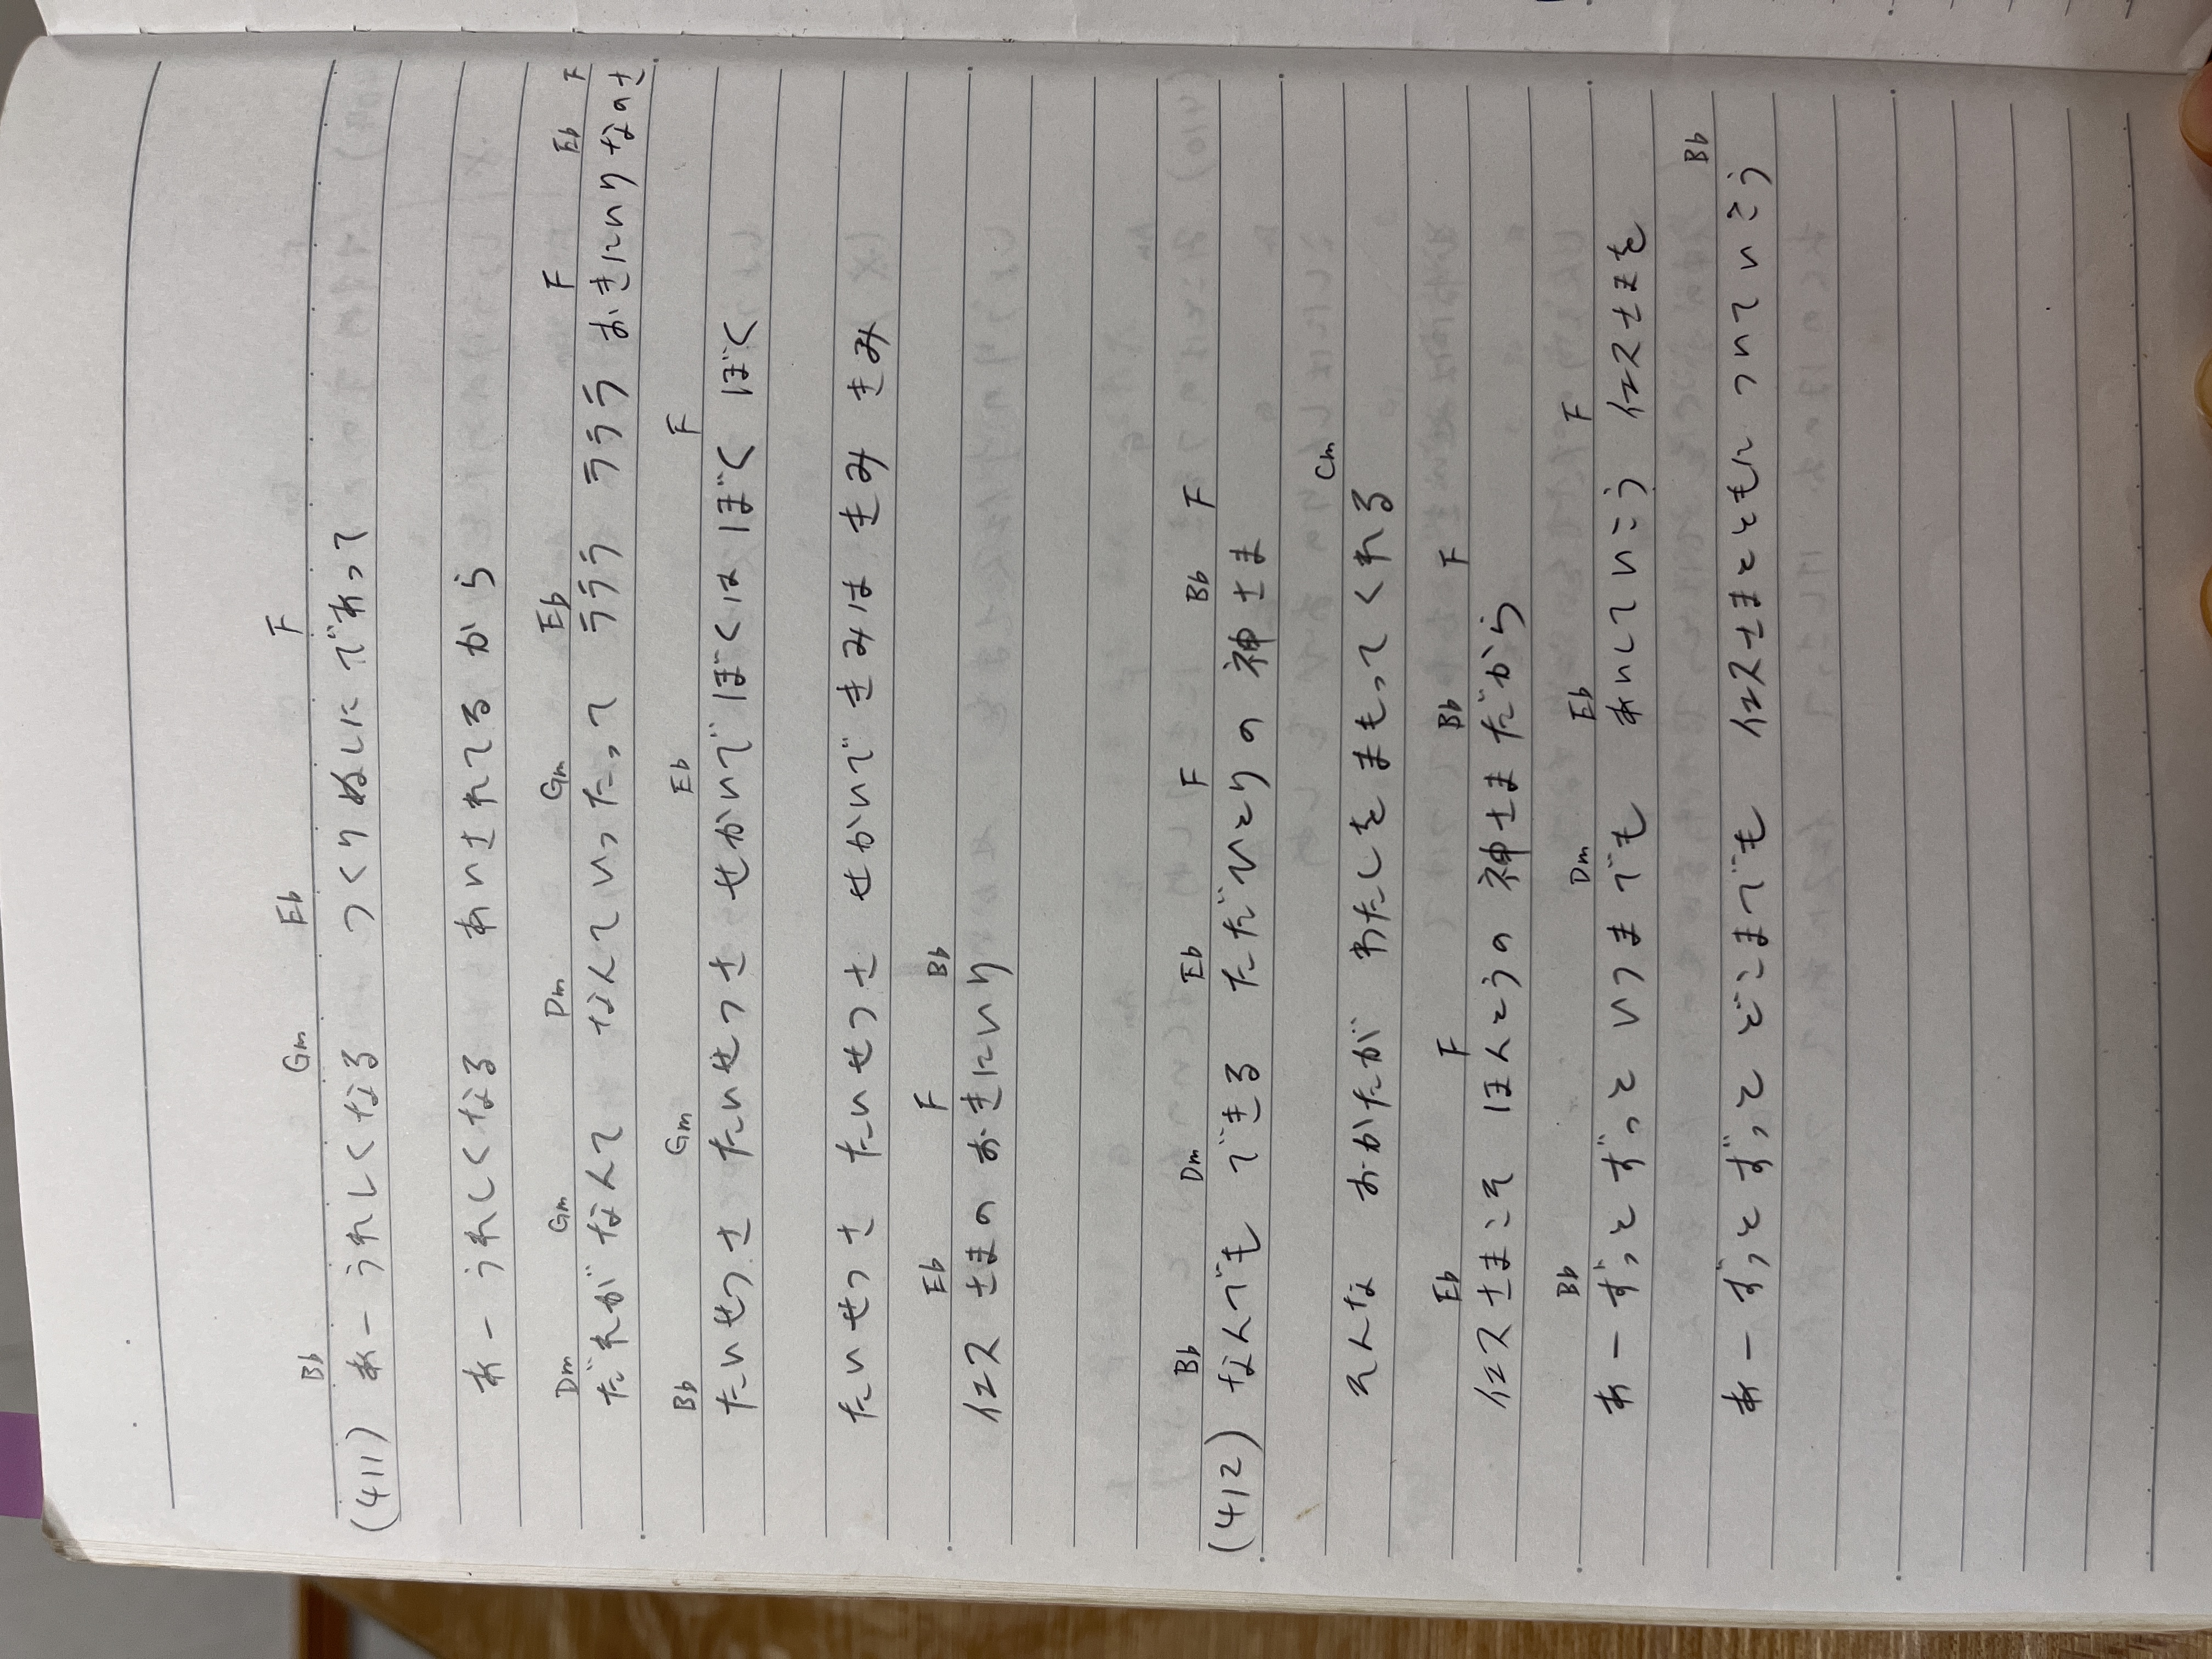 Bb Gm Eb F
(411) あーうれしくなる つくりぬしにであって
あーうれしくなる あいされてるから
Dm Gm Dm Gm Eb F Eb F
だれがなんて なんていったって ラララ ラララ おきにいりなのさ
Bb Gm Eb F
たいせつさ たいせつさ せかいで ぼくは ぼく ぼく
たいせつさ たいせつさ せかいで きみは きみ きみ
Eb F Bb
イエスさまの おきにいり
Bb Dm Eb F Bb F
(412) なんでも できる ただひとりの 神さま
Cm
そんな おかたが わたしを まもって くれる
Eb F Bb F
イエスさまこそ ほんとうの 神さまだから
Bb Dm Eb F
あーずっと ずっと いつまでも あいしていこう イエスさまを
Bb
あーずっと ずっと どこまでも イエスさまとともに ついていこう